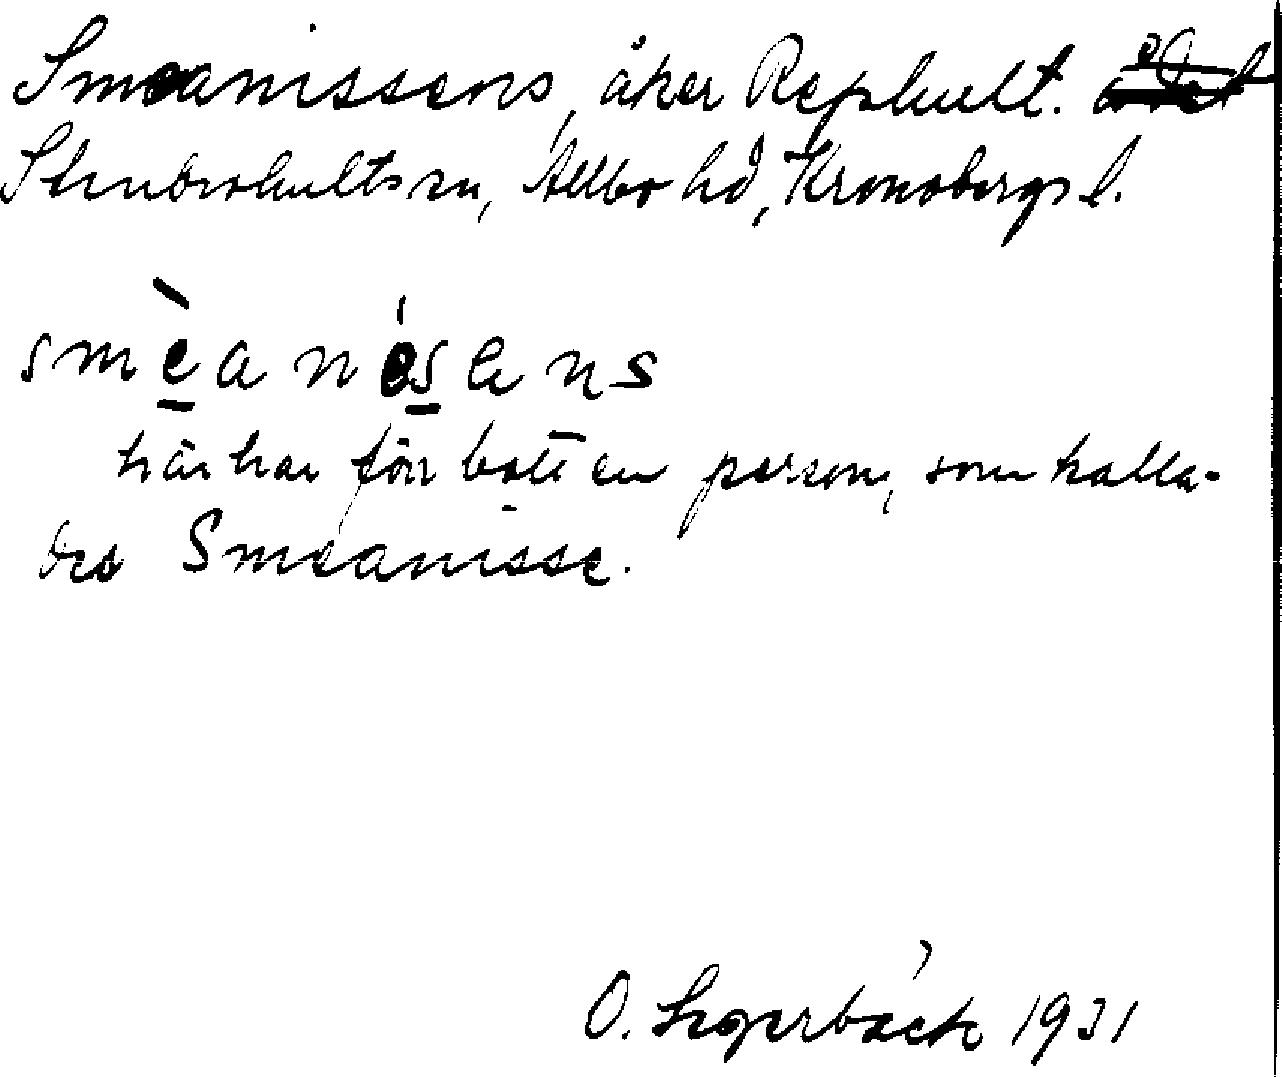 Smeanissens, åker Rephult.
Stenbrohults sn, Allbo hd, Kronobergs l.
smèanésens
här har förr bott en person, som kalla-
des Smeanisse.
O. Segerbäck 1931